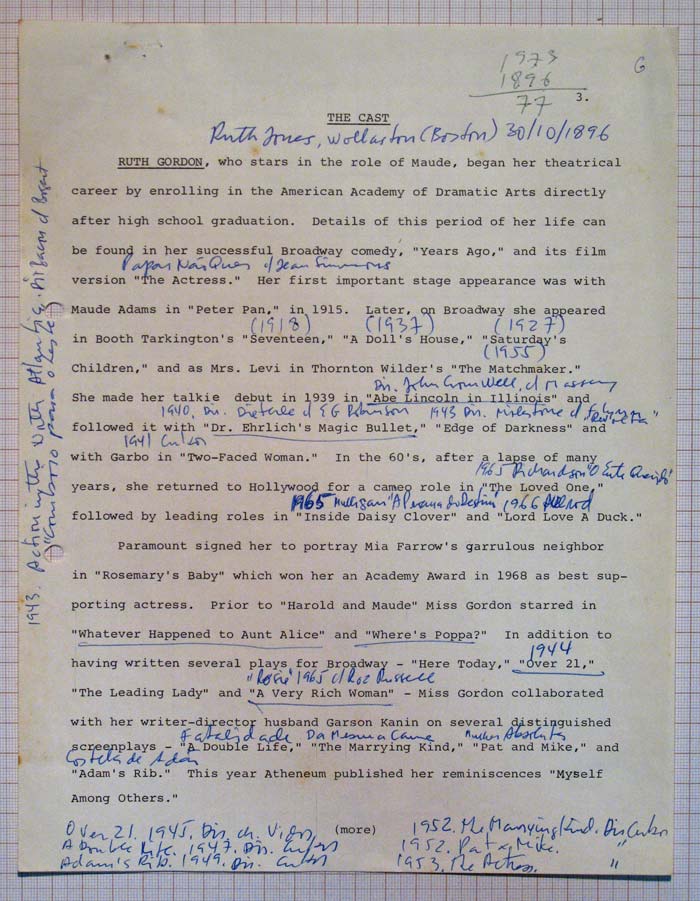 1973
1896
77
G
3.
THE CAST
Ruth Jones, Wollaston (Boston) 30/10/1896
RUTH GORDON, who stars in the role of Maude, began her theatrical
career by enrolling in the American Academy of Dramatic Arts directly
after high school graduation. Details of this period of her life can
be found in her successful Broadway comedy, "Years Ago," and its film
Papai Não Quer c/ Jean Simmons
version "The Actress." Her first important stage appearance was with
Maude Adams in "Peter Pan," in 1915. Later, on Broadway she appeared
(1918) (1937) (1927)
in Booth Tarkington's "Seventeen," "A Doll's House," "Saturday's
(1955)
Children," and as Mrs. Levi in Thornton Wilder's "The Matchmaker."
Dir. John Cromwell, c/ Massey
She made her talkie debut in 1939 in "Abe Lincoln in Illinois" and
1940, Dir. Dieterle c/ E G Robinson 1943 Dir. Milestone c/
followed it with "Dr. Ehrlich's Magic Bullet," "Edge of Darkness" and
1941 Cukor
with Garbo in "Two-Faced Woman." In the 60's, after a lapse of many
1965 Richardson "O Ente Querido"
years, she returned to Hollywood for a cameo role in "The Loved One,"
1965 Mulligan 1966
followed by leading roles in "Inside Daisy Clover" and "Lord Love A Duck."
Paramount signed her to portray Mia Farrow's garrulous neighbor
in "Rosemary's Baby" which won her an Academy Award in 1968 as best sup-
porting actress. Prior to "Harold and Maude" Miss Gordon starred in
"Whatever Happened to Aunt Alice" and "Where's Poppa?" In addition to
1944
having written several plays for Broadway - "Here Today," "Over 21,"
"Rosie" 1965 c/ Roz Russell
"The Leading Lady" and "A Very Rich Woman" - Miss Gordon collaborated
with her writer-director husband Garson Kanin on several distinguished
Fatalidade Da Mesma Carne Mulher Absoluta
screenplays - "A Double Life," "The Marrying Kind," "Pat and Mike," and
Costela de Adão
"Adam's Rib." This year Atheneum published her reminiscences "Myself
Among Others."
(more)
Over 21. 1945. Dir. Ch. Vidor
A Double Life. 1947. Dir. Cukor
Adam's Rib. 1949. Dir. Cukor
1952. The Marrying Kind. Dir Cukor
1952. Pat & Mike. "
1953. The Actress. "
1943. Action in the North Atlantic. Dir Bacon c/ Bogart